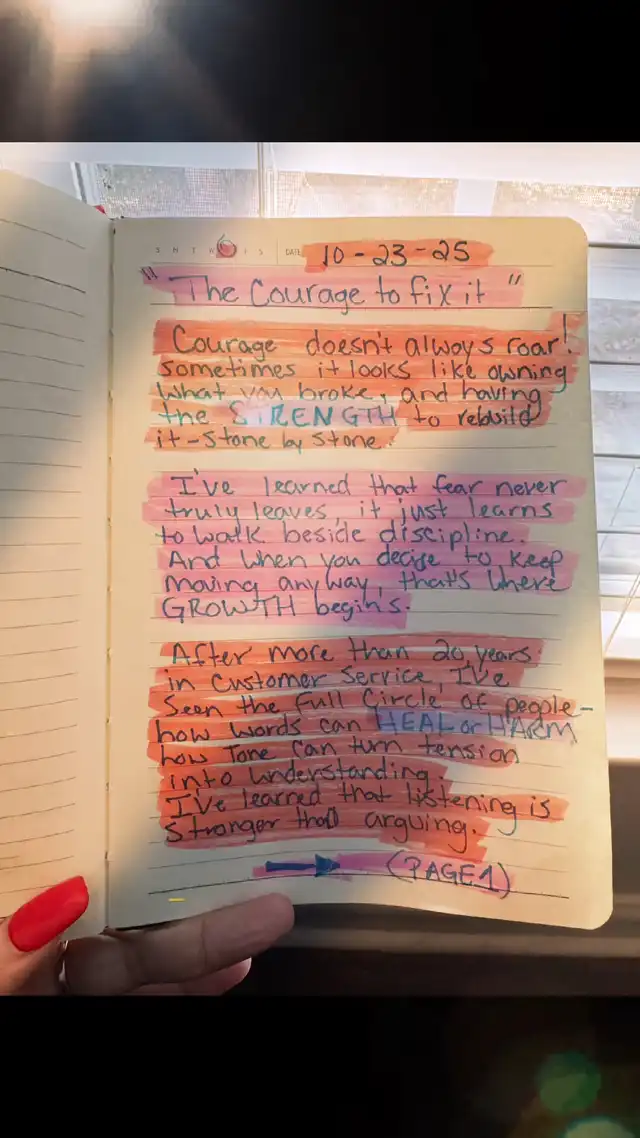 DATE 10-23-25
"The Courage to fix it"
Courage doesn't always roar!
sometimes it looks like owning
what you broke, and having
the STRENGTH to rebuild
it-stone by stone.
I've learned that fear never
truly leaves, it just learns
to walk beside discipline.
And when you decide to keep
moving anyway, that's where
GROWTH begins.
After more than 20 years
in Customer Service, I've
seen the full Circle of people-
how words can HEAL or HARM
how Tone can turn tension
into understanding
I've learned that listening is
stronger than arguing.
(PAGE 1)